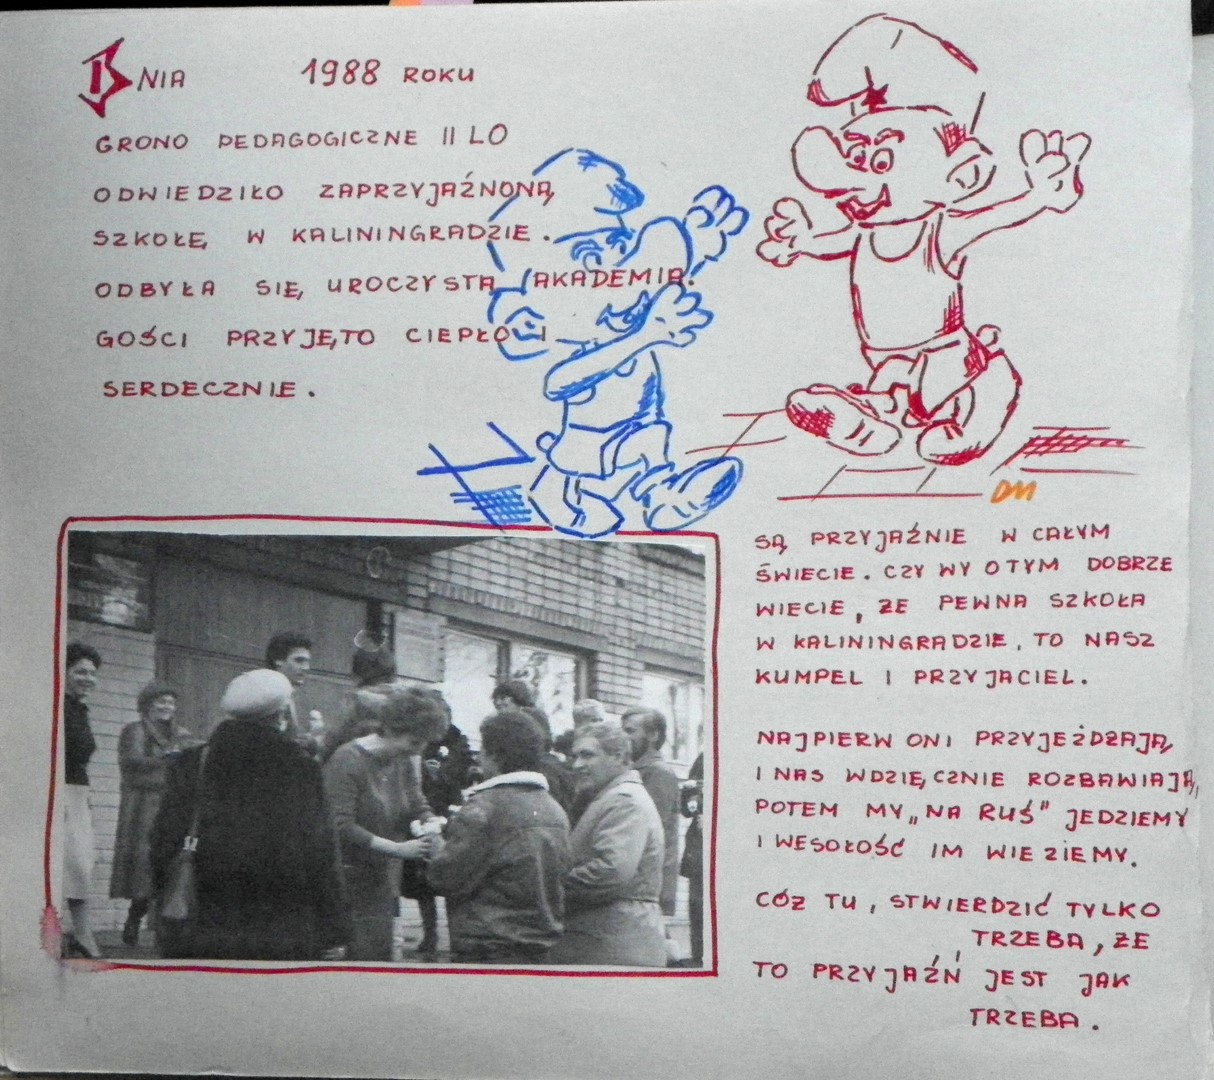 DNIA 1988 ROKU
GRONO PEDAGOGICZNE II LO
ODWIEDZIŁO ZAPRZYJAŹNONĄ
SZKOŁĘ W KALININGRADZIE.
ODBYŁA SIĘ UROCZYSTA AKADEMIA.
GOŚCI PRZYJĘTO CIEPŁO I
SERDECZNIE.
DM
SĄ PRZYJAŹNIE W CAŁYM
ŚWIECIE. CZY WY O TYM DOBRZE
WIECIE, ŻE PEWNA SZKOŁA
W KALININGRADZIE, TO NASZ
KUMPEL I PRZYJACIEL.
NAJPIERW ONI PRZYJEŻDŻAJĄ,
I NAS WDZIĘCZNIE ROZBAWIAJĄ,
POTEM MY „NA RUŚ" JEDZIEMY
I WESOŁOŚĆ IM WIEZIEMY.
CÓZ TU, STWIERDZIĆ TYLKO
TRZEBA, ŻE
TO PRZYJAŹŃ JEST JAK
TRZEBA.